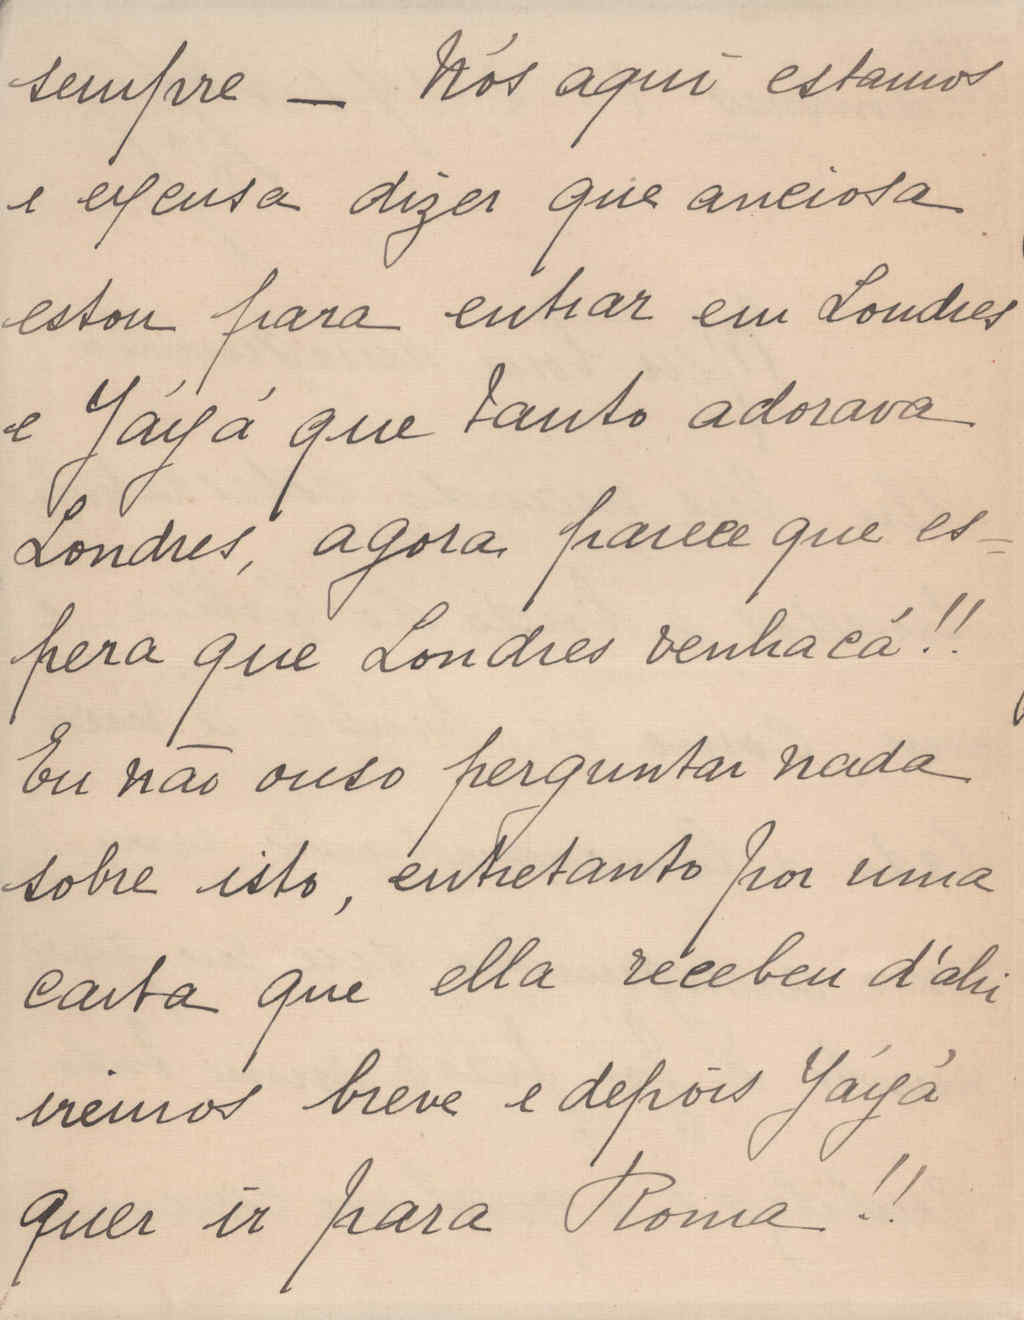 sempre — Nós aqui estamos
e excusa dizer que anciosa
estou para entrar em Londres
e Yáyá que tanto adorava
Londres, agora parece que es=
pera que Londres venha cá!!
Eu não ouso perguntar nada
sobre isto, entretanto por uma
carta que ella recebeu d'ahi
iremos breve e depois Yáyá
quer ir para Roma!!